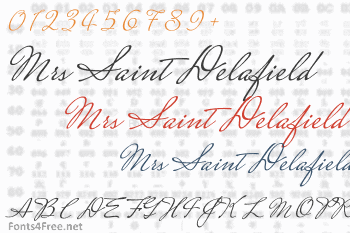 0123456789+
Mrs Saint Delafield
Mrs Saint Delafield
Mrs Saint Delafield
ABCDEFGHIJKLMOPR
Fonts4Free.net